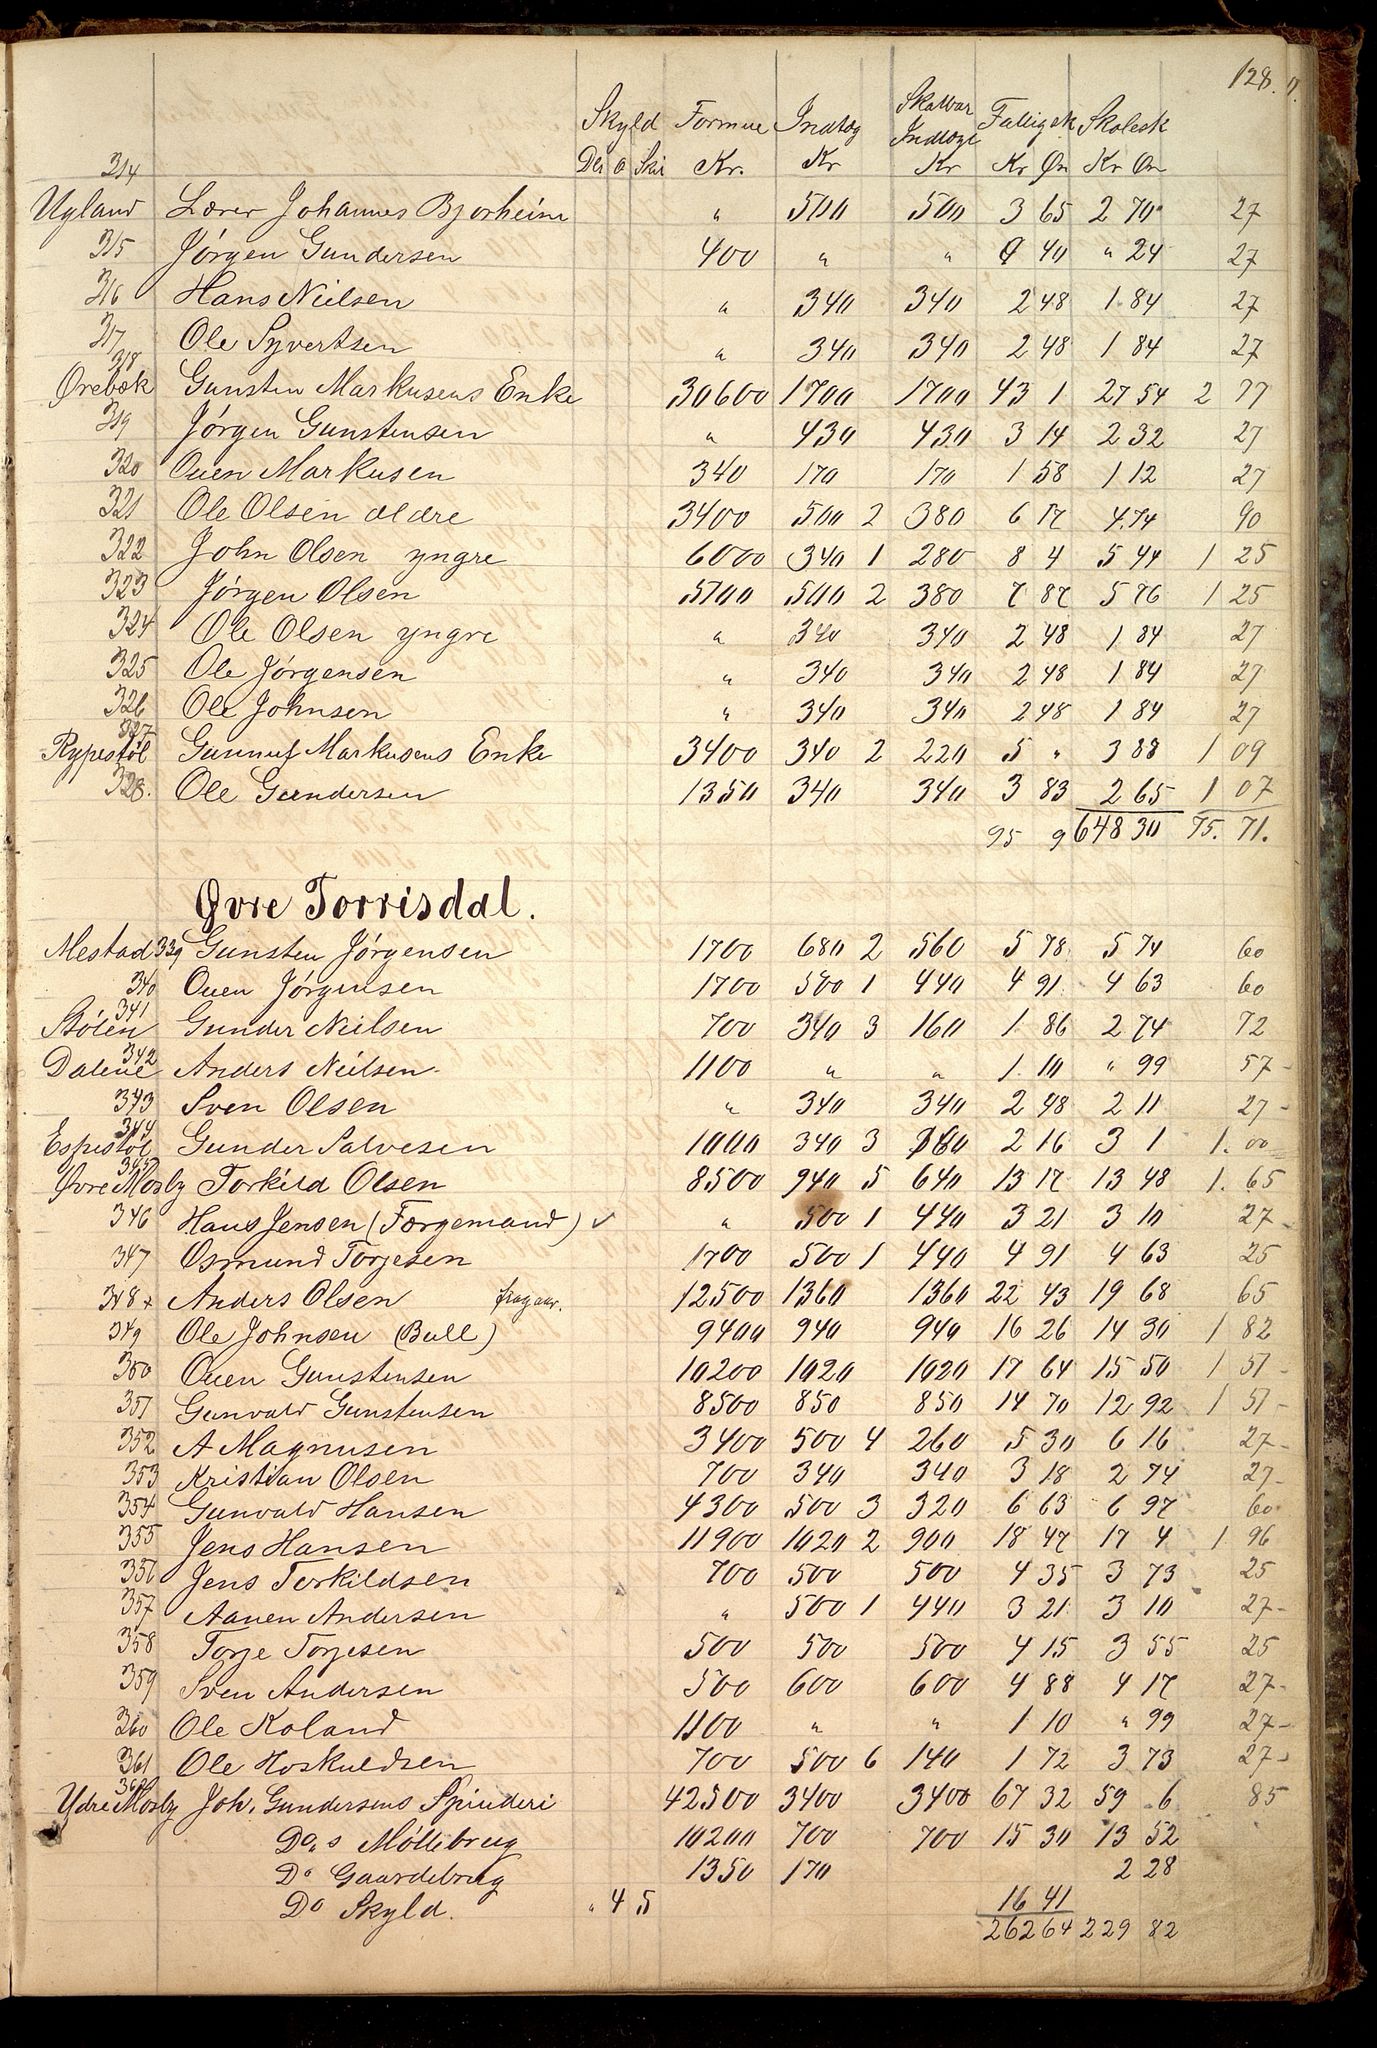 128.
Skyld Formue Indtæg Skatbar Indtægt Fattigsk Skolesk
Kr. Kr Kr Kr Ør Kr Ør
314
Ugland Lærer Johannes Bjorheim " 500 500 3 65 2 70 27
315 Jörgen Gundersen 400 " " 40 " 24 27
316 Hans Nielsen " 340 340 2 48 1 84 27
317 Ole Syvertsen " 340 340 2 48 1 84 27
318
Ørebæk Gunsten Markusens Enke 30600 1700 1700 43 1 27 54 2 77
319 Jörgen Gunstensen " 430 430 3 14 2 32 27
320 Ouen Markusen 340 170 170 1 58 1 12 27
321 Ole Olsen ældre 3400 500 2 380 6 17 4.74 90
322 John Olsen yngre 6000 340 1 280 8 4 5 44 1 25
323 Jörgen Olsen 5100 500 2 380 7 87 5 76 1 25
324 Ole Olsen yngre " 340 340 2 48 1 84 27
325 Ole Jörgensen " 340 340 2 48 1 84 27
326 Ole Johnsen " 340 340 2 48 1 84 27
327
Rypestøl Gunnuf Markusens Enke 3400 340 2 220 5 " 3 88 1 09
328. Ole Gundersen 1350 340 340 3 83 2 65 1 07
95 9 648 30 75. 71.
Øvre Torrisdal.
Mestad 339 Gunsten Jörgensen 1700 680 2 560 5 78 5 74 60
340 Ouen Jörgensen 1700 500 1 440 4 91 4 63 60
341
Stölen Gunder Nielsen 700 340 3 160 1 86 2 74 72
342
Dalene Anders Nielsen 1100 " " 1 10 " 99 57-
343 Sven Olsen " 340 340 2 48 2 11 27-
344
Espestøl Gunder Salvesen 1000 340 3 160 2 16 3 1 1.00
345
Øvre Mosby Torkild Olsen 8500 940 5 640 13 17 13 48 1. 65
346 Hans Jensen (Færgemand) ✓ " 500 1 440 3 21 3 10 27-
347 Osmund Torjesen 1700 500 1 440 4 91 4 63 25
348 + Anders Olsen 12500 1360 1360 22 43 19 68 65
349 Ole Johnsen (Bull) 9400 940 940 16 26 14 30 1 82
350 Ouen Gunstensen 10200 1020 1020 17 64 15 50 1 51-
351 Gunvald Gunstensen 8500 850 850 14 70 12 92 1 51-
352 A Magnusen 3400 500 4 260 5 30 6 16 27-
353 Kristian Olsen 700 340 340 3 18 2 74 27-
354 Gunvald Hansen 4300 500 3 320 6 63 6 97 60
355 Jens Hansen 11900 1020 2 900 18 47 17 4 1 96
356 Jens Terkildsen 700 500 500 4 35 3 73 25
357 Aanen Andersen " 500 1 440 3 21 3 10 27-
358 Torje Torjesen 500 500 500 4 15 3 55 25
359 Sven Andersen 500 600 600 4 88 4 17 27-
360 Ole Koland 1100 " " 1 10 " 99 27-
361 Ole Hoskuldsen 700 500 6 140 1 72 3 73 27-
362
Ydre Mosby Joh. Gundersens Spinderi 42500 3400 3400 67 32 59 6 85
Do s Möllebrug 10200 700 700 15 30 13 52
Do Gaardebrug 1350 170 2 28
Do Skyld. " 4 5 16 41
262 64 229 82